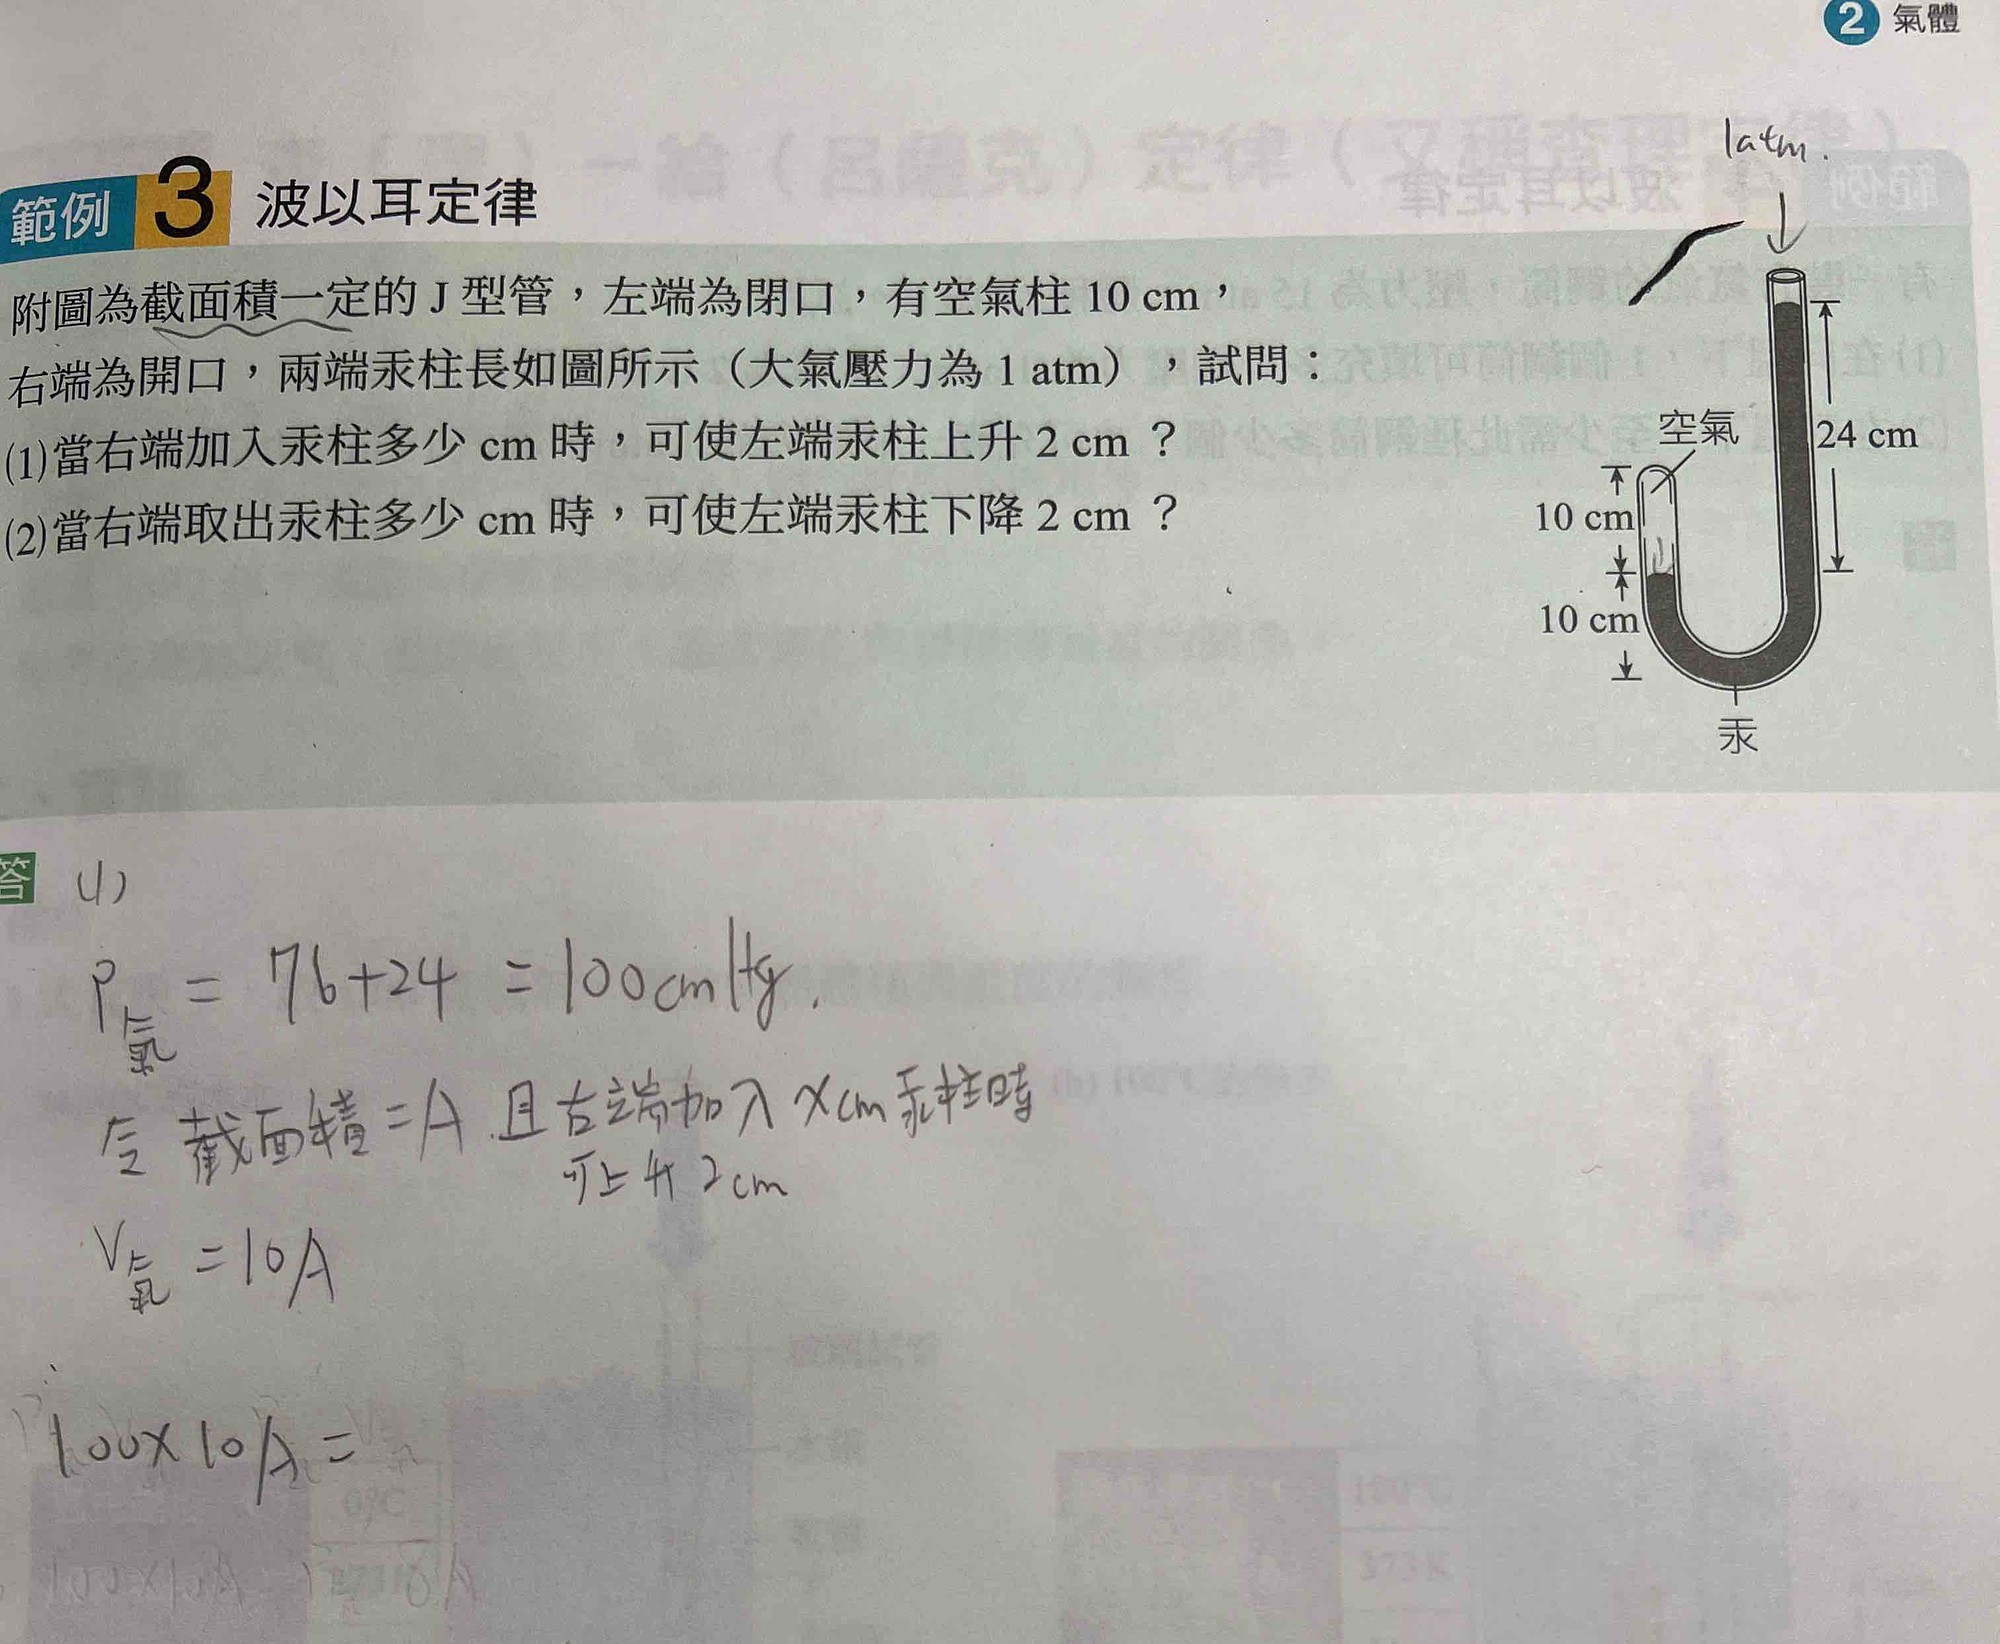 2 氣體
範例 3 波以耳定律
附圖為截面積一定的 J 型管，左端為閉口，有空氣柱 10 cm，
右端為開口，兩端汞柱長如圖所示（大氣壓力為 1 atm），試問：
(1)當右端加入汞柱多少 cm 時，可使左端汞柱上升 2 cm？
(2)當右端取出汞柱多少 cm 時，可使左端汞柱下降 2 cm？
1atm.
空氣
24 cm
10 cm
10 cm
汞
答 (1)
P氣 = 76+24 = 100cmHg.
令 截面積=A 且右端加入 xcm 汞柱時
可上升 2cm
V氣 = 10A
100×10A =